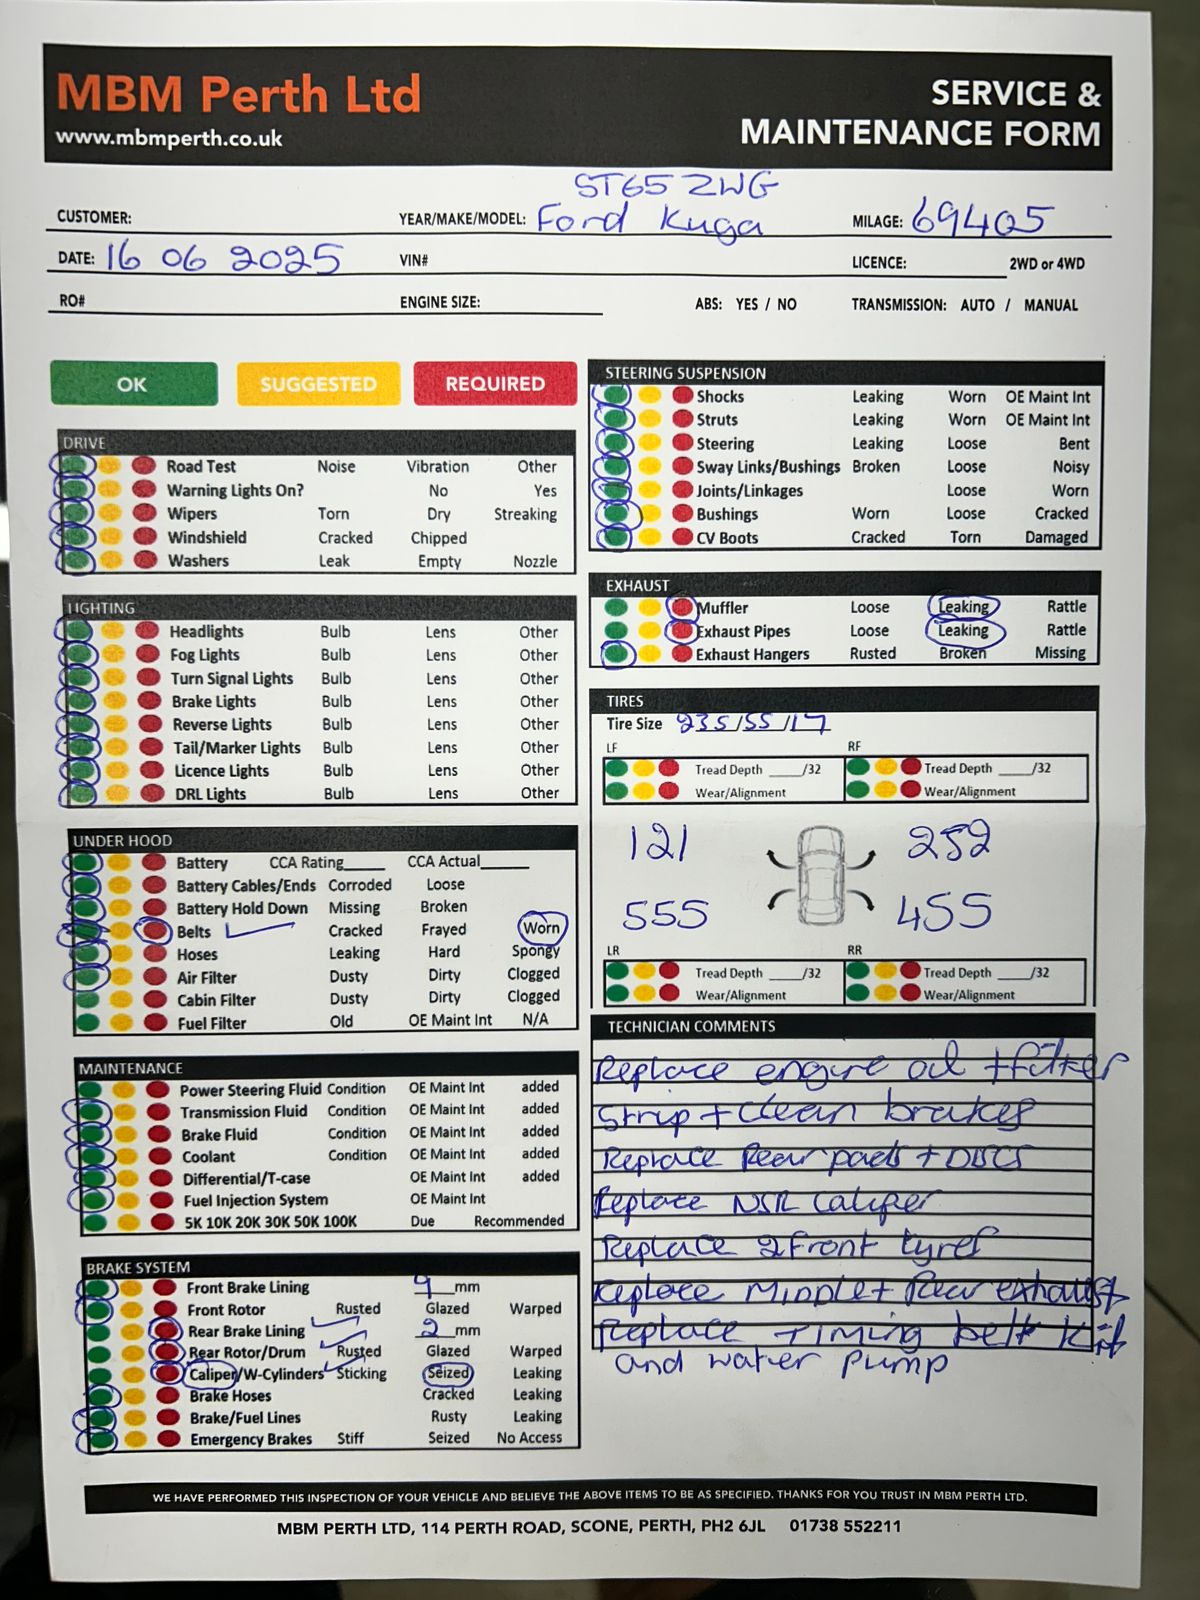 MBM Perth Ltd
www.mbmperth.co.uk
SERVICE &
MAINTENANCE FORM
ST65 ZWG
CUSTOMER: YEAR/MAKE/MODEL: Ford Kuga MILAGE: 69405
DATE: 16 06 2025 VIN# LICENCE: 2WD or 4WD
RO# ENGINE SIZE: ABS: YES / NO TRANSMISSION: AUTO / MANUAL
OK SUGGESTED REQUIRED
DRIVE
Road Test Noise Vibration Other
Warning Lights On? No Yes
Wipers Torn Dry Streaking
Windshield Cracked Chipped
Washers Leak Empty Nozzle
LIGHTING
Headlights Bulb Lens Other
Fog Lights Bulb Lens Other
Turn Signal Lights Bulb Lens Other
Brake Lights Bulb Lens Other
Reverse Lights Bulb Lens Other
Tail/Marker Lights Bulb Lens Other
Licence Lights Bulb Lens Other
DRL Lights Bulb Lens Other
UNDER HOOD
Battery CCA Rating____ CCA Actual____
Battery Cables/Ends Corroded Loose
Battery Hold Down Missing Broken
Belts Cracked Frayed Worn
Hoses Leaking Hard Spongy
Air Filter Dusty Dirty Clogged
Cabin Filter Dusty Dirty Clogged
Fuel Filter Old OE Maint Int N/A
MAINTENANCE
Power Steering Fluid Condition OE Maint Int added
Transmission Fluid Condition OE Maint Int added
Brake Fluid Condition OE Maint Int added
Coolant Condition OE Maint Int added
Differential/T-case OE Maint Int added
Fuel Injection System OE Maint Int
5K 10K 20K 30K 50K 100K Due Recommended
BRAKE SYSTEM
Front Brake Lining 9 mm
Front Rotor Rusted Glazed Warped
Rear Brake Lining 2 mm
Rear Rotor/Drum Rusted Glazed Warped
Caliper/W-Cylinders Sticking Seized Leaking
Brake Hoses Cracked Leaking
Brake/Fuel Lines Rusty Leaking
Emergency Brakes Stiff Seized No Access
STEERING SUSPENSION
Shocks Leaking Worn OE Maint Int
Struts Leaking Worn OE Maint Int
Steering Leaking Loose Bent
Sway Links/Bushings Broken Loose Noisy
Joints/Linkages Loose Worn
Bushings Worn Loose Cracked
CV Boots Cracked Torn Damaged
EXHAUST
Muffler Loose Leaking Rattle
Exhaust Pipes Loose Leaking Rattle
Exhaust Hangers Rusted Broken Missing
TIRES
Tire Size 235/55/17
LF RF
Tread Depth ____/32 Tread Depth ____/32
Wear/Alignment Wear/Alignment
121 252
555 455
LR RR
Tread Depth ____/32 Tread Depth ____/32
Wear/Alignment Wear/Alignment
TECHNICIAN COMMENTS
Replace engine oil + filter
Strip + clean brakes
Replace Rear pads + DISCS
Replace NSR Caliper
Replace 2 front tyres
Replace Middle + Rear exhaust
Replace timing belt kit
and water pump
WE HAVE PERFORMED THIS INSPECTION OF YOUR VEHICLE AND BELIEVE THE ABOVE ITEMS TO BE AS SPECIFIED. THANKS FOR YOU TRUST IN MBM PERTH LTD.
MBM PERTH LTD, 114 PERTH ROAD, SCONE, PERTH, PH2 6JL 01738 552211